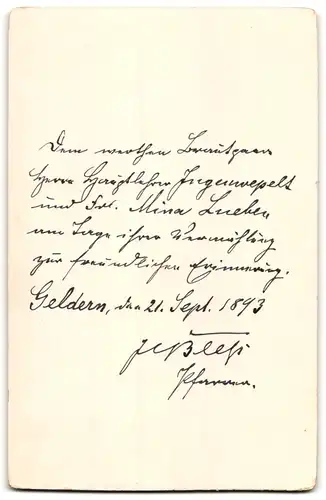 Dem werthen Brautpaar
Herrn Hauptlehrer Ingenwepelt
und Frl. Mina Lueben
am Tage ihrer Vermählung
zur freundlichen Erinnerung.
Geldern, den 21. Sept. 1893
Pfarrer.